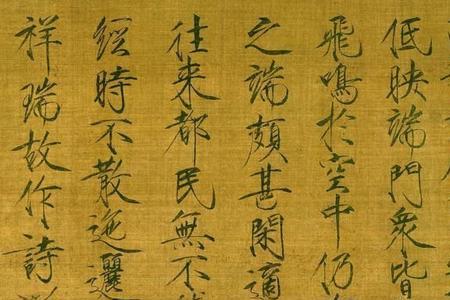 低映端門衆皆
飛鳴於空中仍
之端頗甚閑適
往来都民無不
經時不散迤邐
祥瑞故作詩